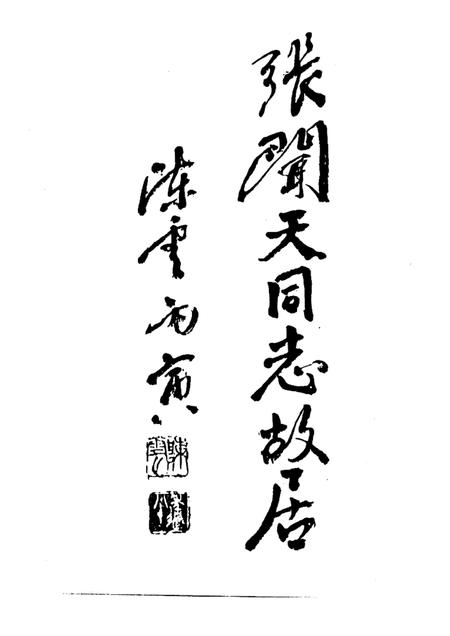 張聞天同志故居
陳雲 丙寅
陳雲